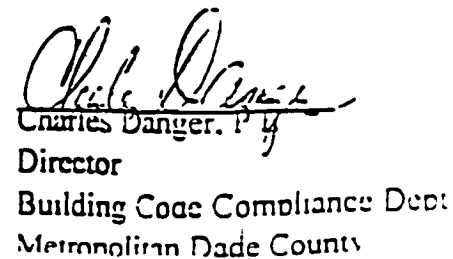 Charles Danger, P.E.
Director
Building Code Compliance Dept
Metropolitan Dade County